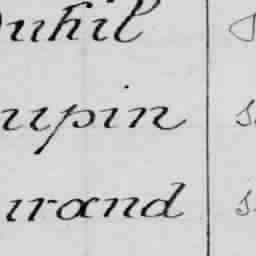 Duhil
upin
urand